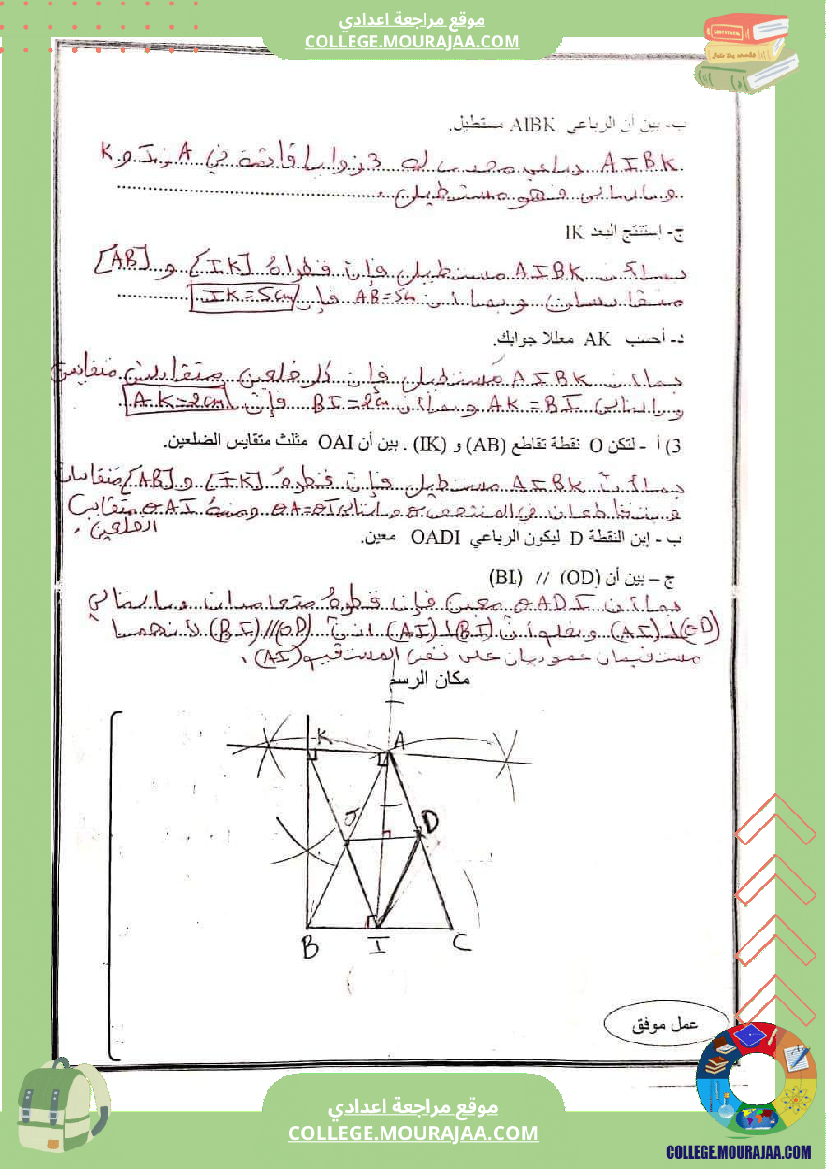 موقع مراجعة اعدادي
COLLEGE.MOURAJAA.COM
ب- بين أن الرباعي AIBK مستطيل.
AIBK رباعي محدب له 3 زوايا قائمة في A و I و K
وبالتالي فهو مستطيل.
ج- إستنتج البعد IK
بما أن AIBK مستطيل فإن قطراه [IK] و [AB]
متقايسان وبما أن AB=5cm فإن IK=5cm
د- أحسب AK معللا جوابك.
بما أن AIBK مستطيل فإن كل ضلعين متقابلين متقايسين
وبالتالي AK=BI وبما أن BI=2cm فإن AK=2cm
3) أ - لتكن O نقطة تقاطع (AB) و (IK) . بين أن OAI مثلث متقايس الضلعين.
بما أن AIBK مستطيل فإن قطراه [IK] و [AB] متقايسان
و يتقاطعان في المنتصف O وبالتالي OA=OI ومنه OAI متقايس
الضلعين.
ب - إبن النقطة D ليكون الرباعي OADI معين.
ج – بين أن (OD) // (BI)
بما أن OADI معين فإن قطراه متعامدان وبالتالي
(OD)⊥(AI) و نعلم أن (BI)⊥(AI) اذن (OD)//(BI) لأنهما
مستقيمان عموديان على نفس المستقيم (AI).
مكان الرسم
K
A
O
D
B
I
C
عمل موفق
موقع مراجعة اعدادي
COLLEGE.MOURAJAA.COM
COLLEGE.MOURAJAA.COM